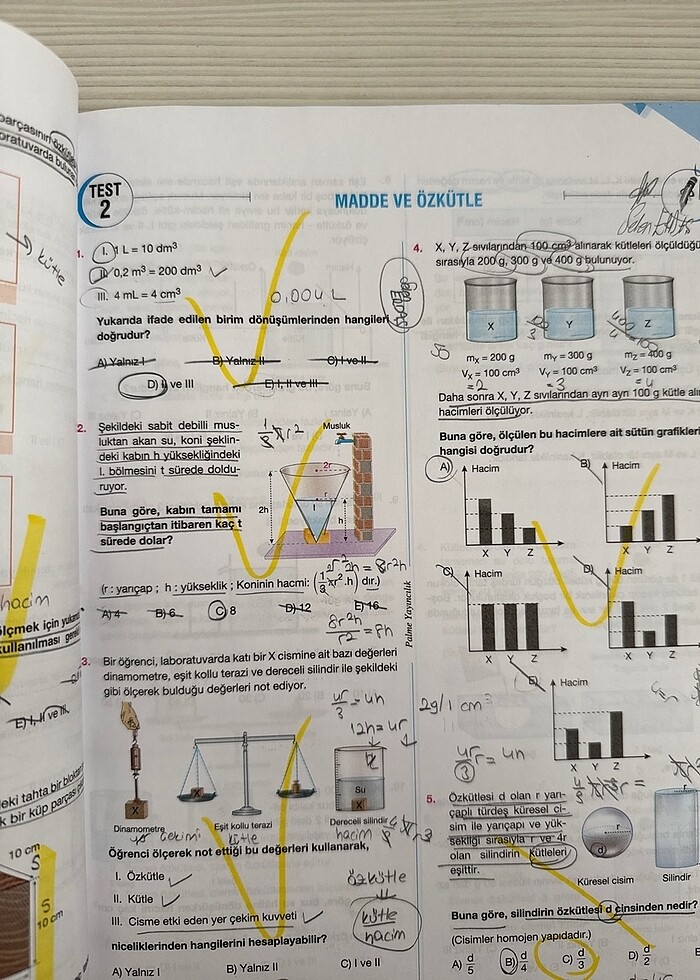 parçasının
oratuvarda bulu
kütle
hacim
ölçmek için yukarı
kullanılması
E) I, II ve III.
eki tahta bir blo
k bir küp parça
10 cm
5
5
10 cm
TEST
2
MADDE VE ÖZKÜTLE
1.
I. 1 L = 10 dm³
II. 0,2 m³ = 200 dm³
III. 4 mL = 4 cm³
0.004 L
Yukarıda ifade edilen birim dönüşümlerinden hangileri
doğrudur?
A) Yalnız I
B) Yalnız II
C) I ve II
D) II ve III
E) I, II ve III
2.
Şekildeki sabit debili mus-
luktan akan su, koni şeklin-
deki kabın h yüksekliğindeki
I. bölmesini t sürede doldu-
ruyor.
Buna göre, kabın tamamı
başlangıçtan itibaren kaç t
sürede dolar?
Musluk
2r
r
I
2h
h
(r : yarıçap ; h : yükseklik ; Koninin hacmi: (1/3 πr².h) dır.)
= 8r²h
A) 4
B) 6
C) 8
D) 12
E) 16
8r²h
r²
3.
Bir öğrenci, laboratuvarda katı bir X cismine ait bazı değerleri
dinamometre, eşit kollu terazi ve dereceli silindir ile şekildeki
gibi ölçerek bulduğu değerleri not ediyor.
X
X
Su
X
Dinamometre
Eşit kollu terazi
Dereceli silindir
kütle
hacim
Öğrenci ölçerek not ettiği bu değerleri kullanarak,
I. Özkütle
II. Kütle
III. Cisme etki eden yer çekim kuvveti
özkütle
kütle
hacim
niceliklerinden hangilerini hesaplayabilir?
A) Yalnız I
B) Yalnız II
C) I ve II
Palme Yayıncılık
4.
X, Y, Z sıvılarından 100 cm³ alınarak kütleleri ölçüldüğü
sırasıyla 200 g, 300 g ve 400 g bulunuyor.
X
Y
Z
mX = 200 g
mY = 300 g
mZ = 400 g
VX = 100 cm³
VY = 100 cm³
VZ = 100 cm³
= 2
= 3
= 4
Daha sonra X, Y, Z sıvılarından ayrı ayrı 100 g kütle alı
hacimleri ölçülüyor.
Buna göre, ölçülen bu hacimlere ait sütun grafikleri
hangisi doğrudur?
A)
Hacim
X Y Z
B)
Hacim
X Y Z
C)
Hacim
X Y Z
D)
Hacim
X Y Z
E)
Hacim
X Y Z
2g/1 cm³
5.
Özkütlesi d olan r yarı-
çaplı türdeş küresel ci-
sim ile yarıçapı ve yük-
sekliği sırasıyla r ve 4r
olan silindirin kütleleri
eşittir.
r
d
Küresel cisim
r
Silindir
Buna göre, silindirin özkütlesi d cinsinden nedir?
(Cisimler homojen yapıdadır.)
A) d/5
B) d/4
C) d/3
D) d/2
E